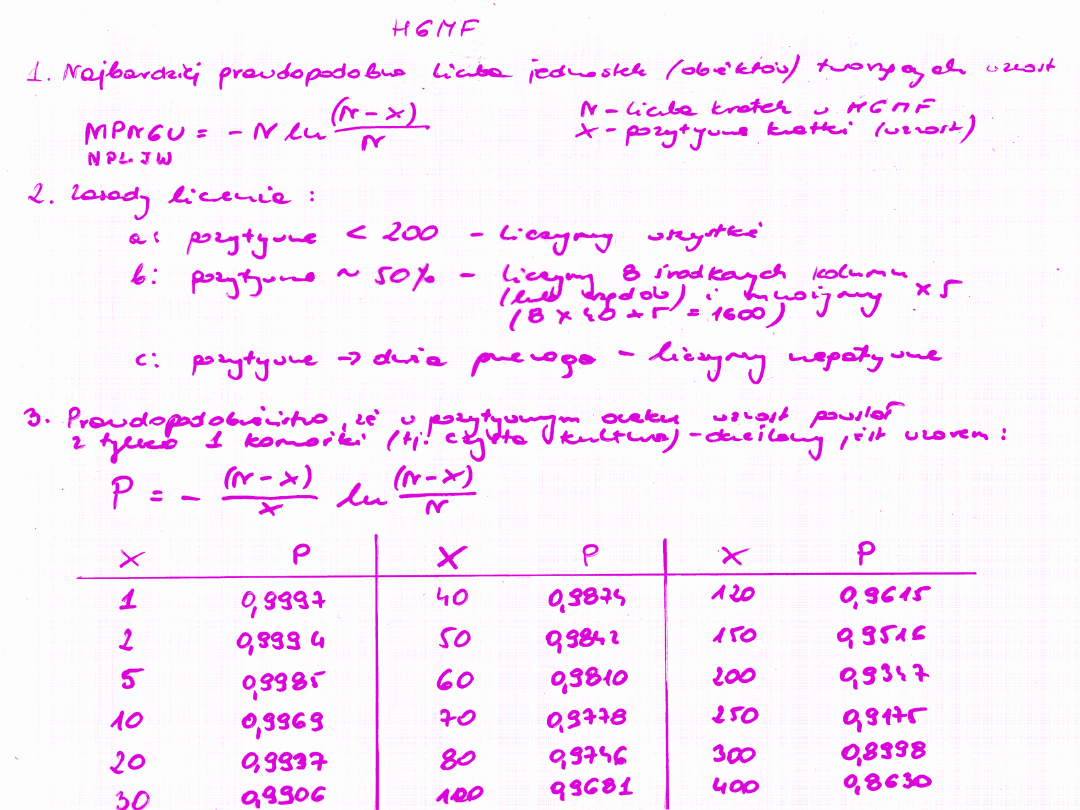 HGMF
1. Najbardziej prawdopodobna liczba jednostek (obiektów) tworzących wzrost
MPNGU = - N ln (N-X)/N
N - liczba kratek w HGMF
NPLJW
X - pozytywne kratki (wzrost)
2. Zasady liczenia :
a: pozytywne < 200 - liczymy wszystkie
b: pozytywne ~ 50% - liczymy 8 środkowych kolumn
(lub rzędów) i mnożymy x 5
(8 x 40 x 5 = 1600)
c: pozytywne → duża przewaga - liczymy negatywne
3. Prawdopodobieństwo, że w pozytywnym oczku wzrost powstał
z tylko 1 komórki (tj. czysta kultura) - określany jest wzorem :
P = - (N-X)/X ln (N-X)/N
X P X P X P
1 0,9997 40 0,9874 120 0,9615
2 0,9994 50 0,9842 150 0,9516
5 0,9985 60 0,9810 200 0,9347
10 0,9969 70 0,9778 250 0,9175
20 0,9937 80 0,9746 300 0,8998
30 0,9906 100 0,9681 400 0,8630